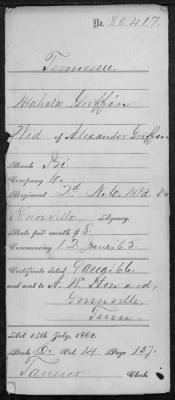 No. 80417.
Tennessee.
Mahala Griffin
Wid of Alexander Griffin
Rank Pri
Company C.
Regiment 2d N.C. Mtd
Knoxville Agency.
Rate per month $ 8.
Commencing 12 June 65
Certificate dated 9 Aug 66
and sent to A. W. Howard,
Greeneville,
Tenn.
Act 14th July, 1862.
Book Vol. 4 Page 127.
Clerk.